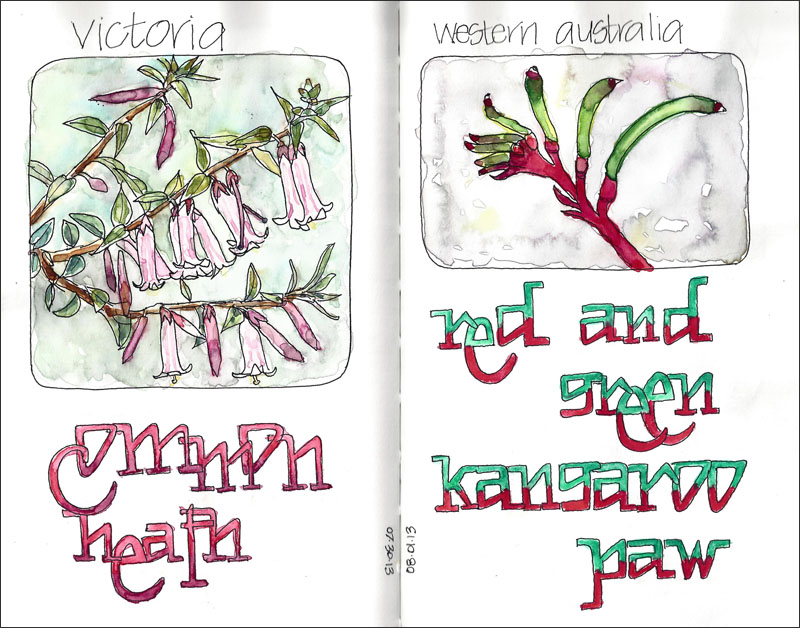 victoria
common
heath
07·30·13
western australia
red and
green
kangaroo
paw
08·01·13